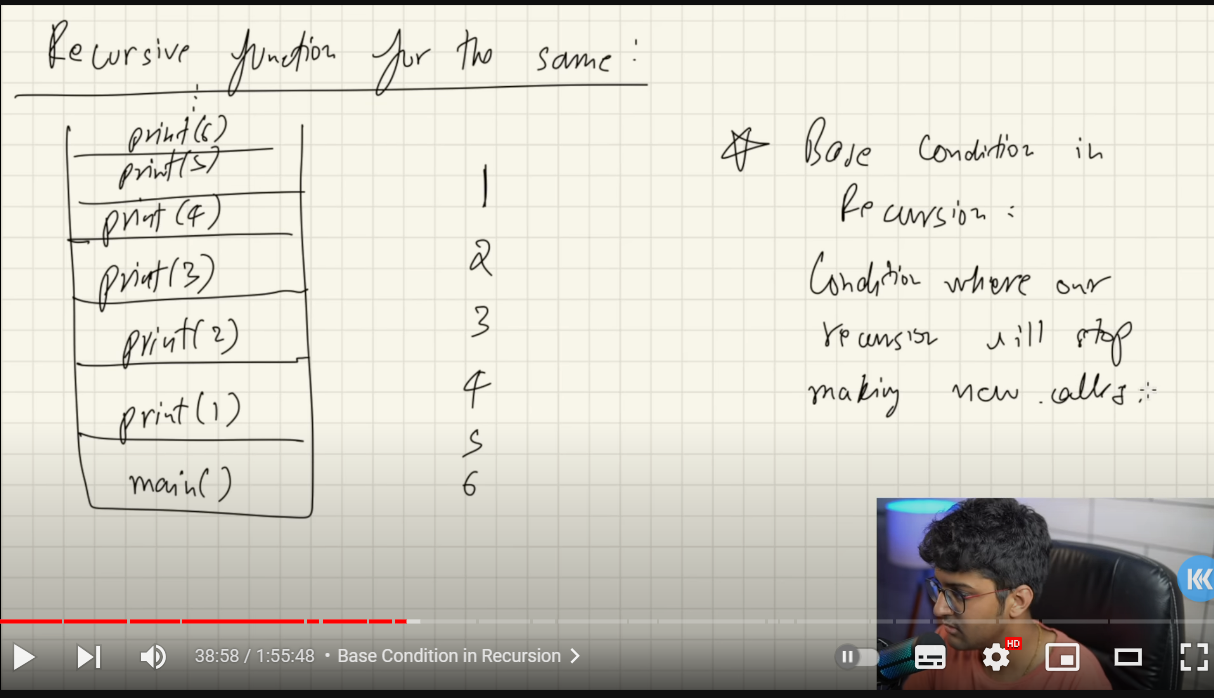 Recursive function for the same :
print(6)
print(5)
print(4)
print(3)
print(2)
print(1)
main()
1
2
3
4
5
6
Base Condition in
Recursion :
Condition where our
recursion will stop
making new calls.
HD
38:58 / 1:55:48 • Base Condition in Recursion